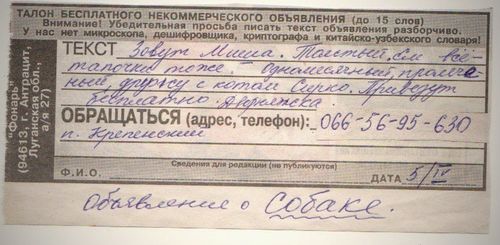 ТАЛОН БЕСПЛАТНОГО НЕКОММЕРЧЕСКОГО ОБЪЯВЛЕНИЯ (до 15 слов)
Внимание! Убедительная просьба писать текст объявления разборчиво.
У нас нет микроскопа, дешифровщика, криптографа и китайско-узбекского словаря!
"Фонарь"
(94613, г. Антрацит,
Луганская обл.,
а/я 27)
ТЕКСТ Зовут Миша. Толстый. Ем всё-
тапочки тоже. Одномесячный,
дружу с котом Сирко. Привезут
бесплатно. Дворняжка.
ОБРАЩАТЬСЯ (адрес, телефон): 066-56-95-630
п. Крепенский
Сведения для редакции (не публикуются)
Ф.И.О. ДАТА 5/IV
Объявление о Собаке.